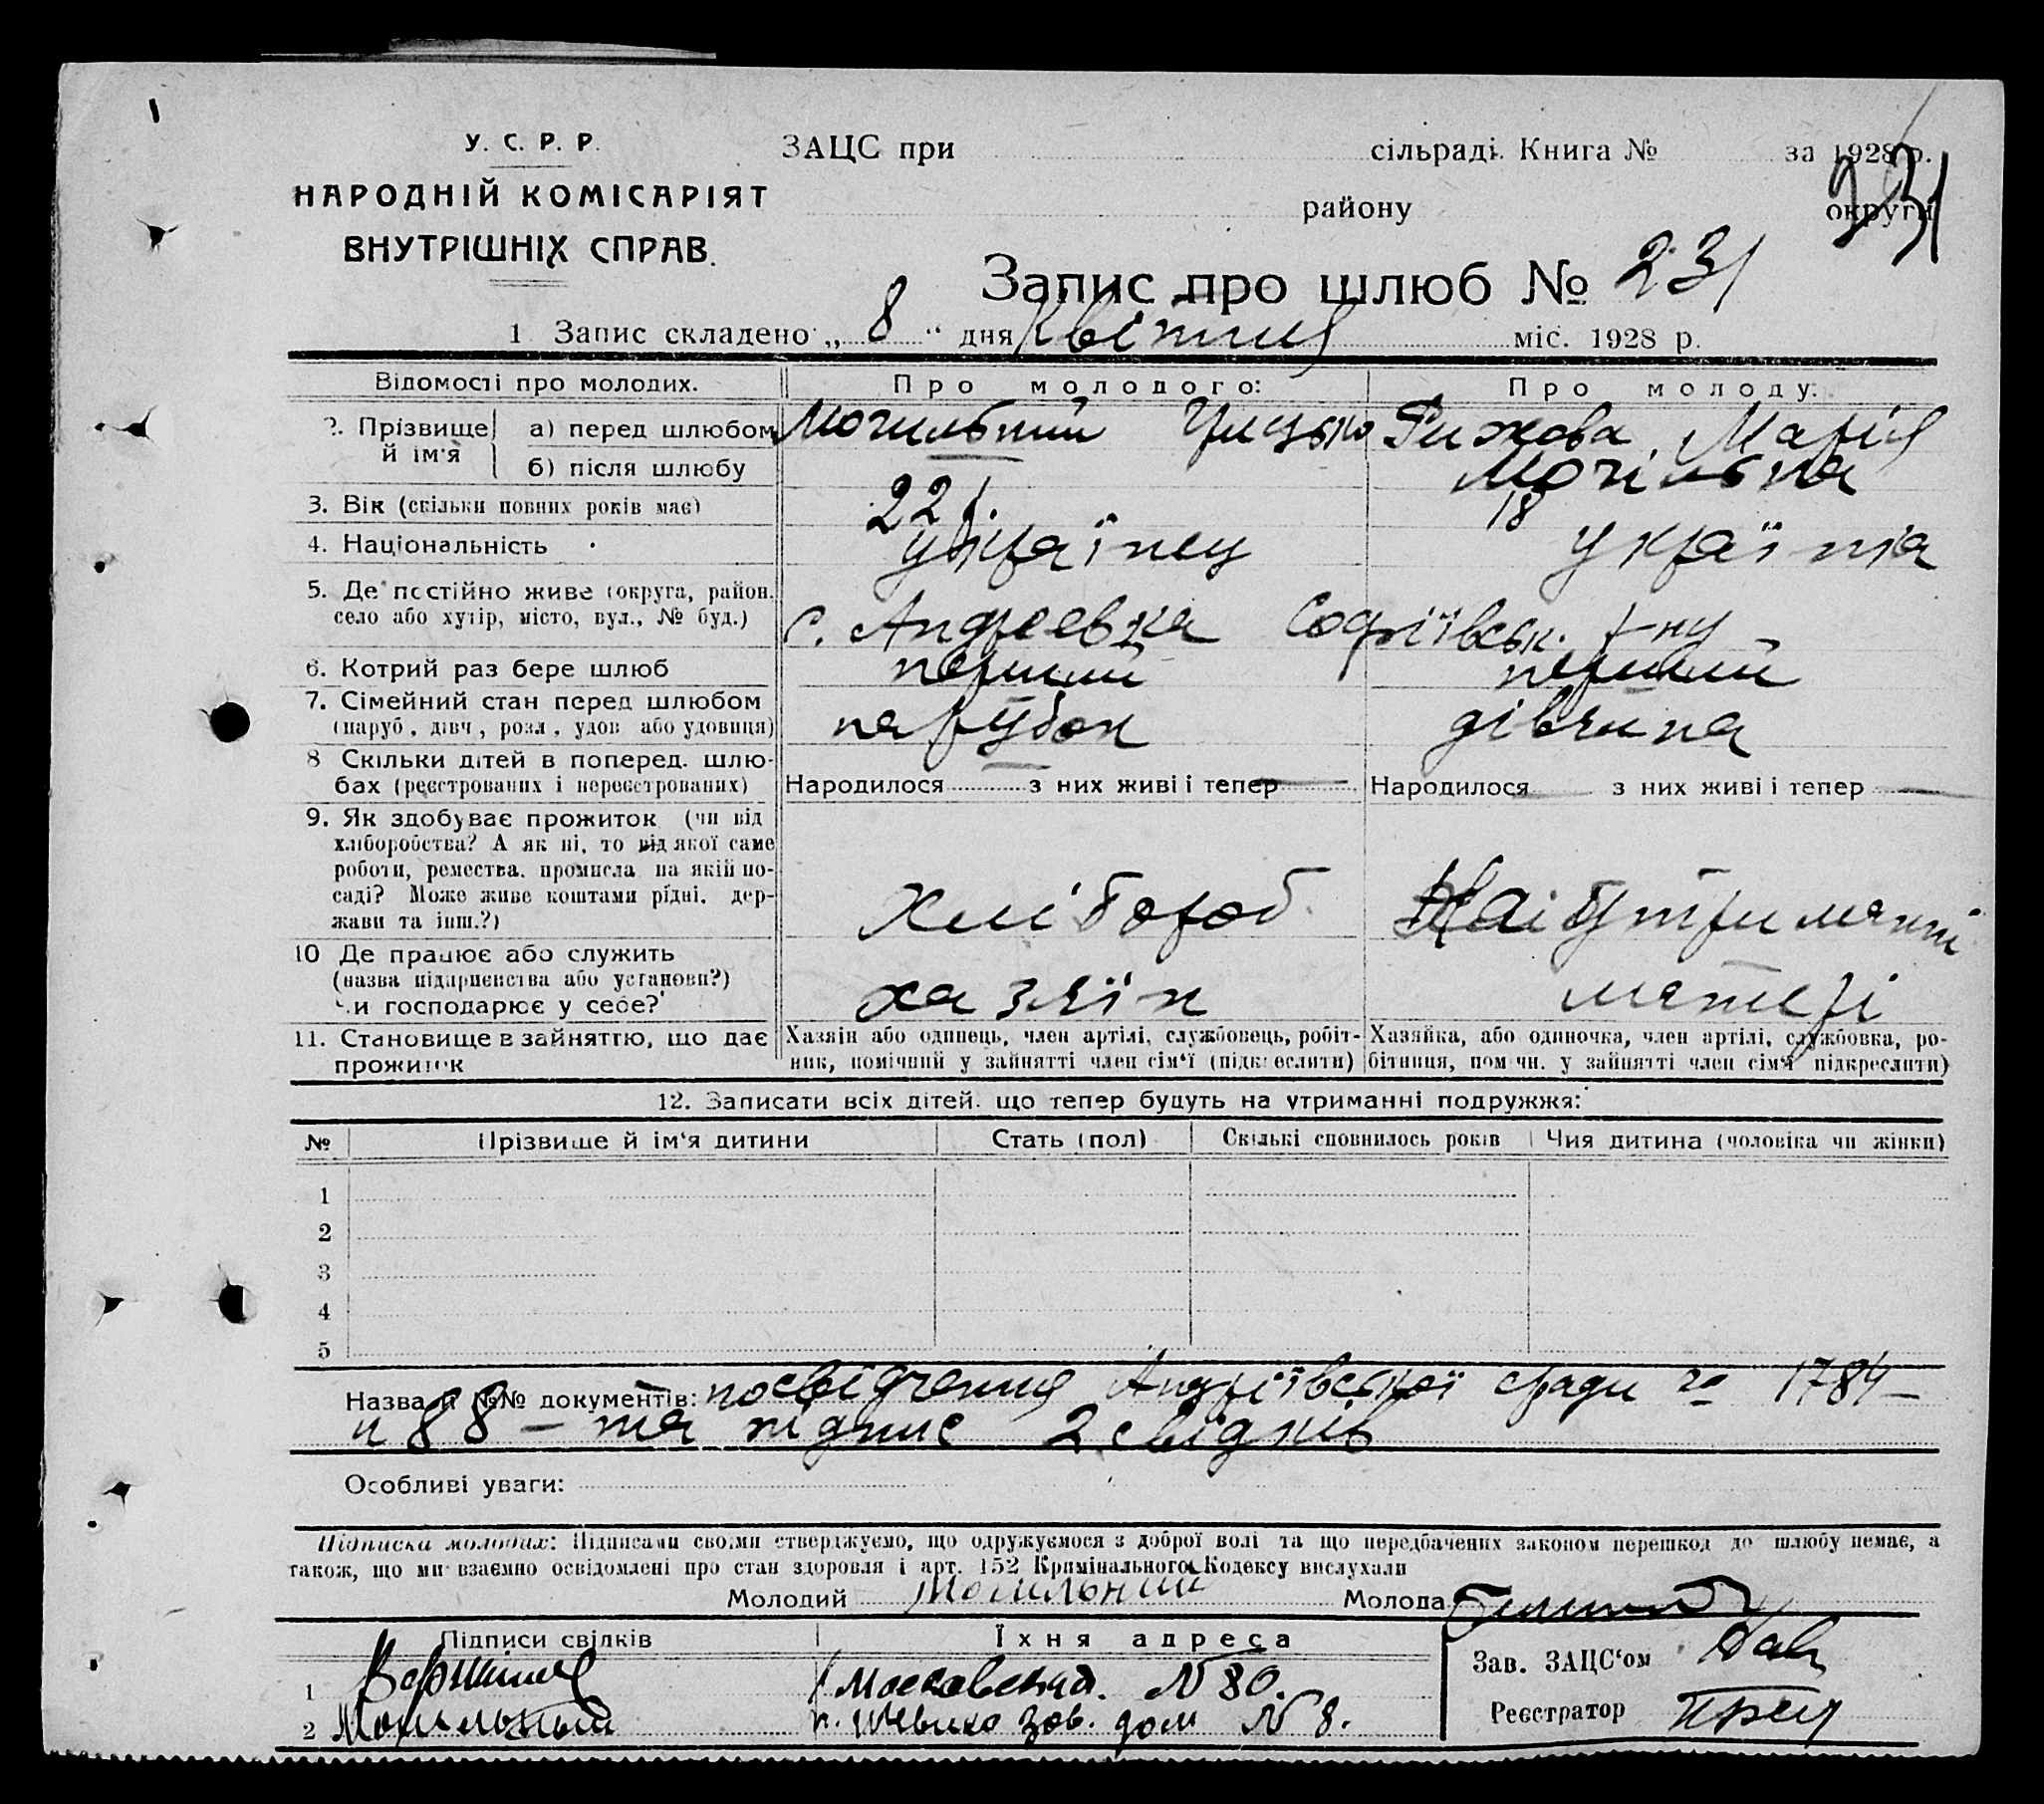 У. С. Р. Р.
НАРОДНІЙ КОМІСАРІЯТ
ВНУТРІШНІХ СПРАВ.
ЗАЦС при сільраді. Книга № за 1928 р.
району округи
231
Запис про шлюб № 231
1 Запис складено „ 8 “ дня Квітня міс. 1928 р.
Відомості про молодих. Про молодого: Про молоду:
2. Прізвище й ім'я а) перед шлюбом Могильний Грицько Рижова Марія
б) після шлюбу Могільна
3. Вік (скільки повних років має) 22 18
4. Національність українец українка
5. Де постійно живе (округа, район, село або хутір, місто, вул., № буд.) с. Андреевка Софіївськ. р-ну
6. Котрий раз бере шлюб перший перший
7. Сімейний стан перед шлюбом (паруб., дівч., розл., удов. або удовиця) парубок дівчина
8 Скільки дітей в поперед. шлюбах (реєстрованих і нереєстрованих) Народилося з них живі і тепер Народилося з них живі і тепер
9. Як здобуває прожиток (чи від хліборобства? А як ні, то від якої саме роботи, ремества, промисла на якій посаді? Може живе коштами рідні, держави та інш.?) Хлібороб На утриманні
10 Де працює або служить (назва підприємства або установи?) Чи господарює у себе? хазяїн матері
11. Становище в зайняттю, що дає прожиток
Хазяїн або одинець, член артілі, службовець, робітник, помічний у зайнятті член сім'ї (підкреслити)
Хазяйка, або одиночка, член артілі, службовка, робітниця, помічн. у зайнятті член сім'ї підкреслити)
12. Записати всіх дітей, що тепер будуть на утриманні подружжя:
№ Прізвище й ім'я дитини Стать (пол) Скількі сповнилось років Чия дитина (чоловіка чи жінки)
1
2
3
4
5
Назва й №№ документів: посвідчення Андріївської сради за 1784
и 88 – та підпис 2 свідків
Особливі уваги:
Підписка молодих: Підписами своїми стверджуємо, що одружуємося з доброї волі та що передбачених законом перешкод до шлюбу немає, а
також, що ми взаємно освідомлені про стан здоровля і арт. 152 Кримінального Кодексу вислухали
Молодий Могильний Молода
Підписи свідків Їхня адреса
1 Московская. №80.
2 Могильный дом № 8.
Зав. ЗАЦС'ом
Реєстратор